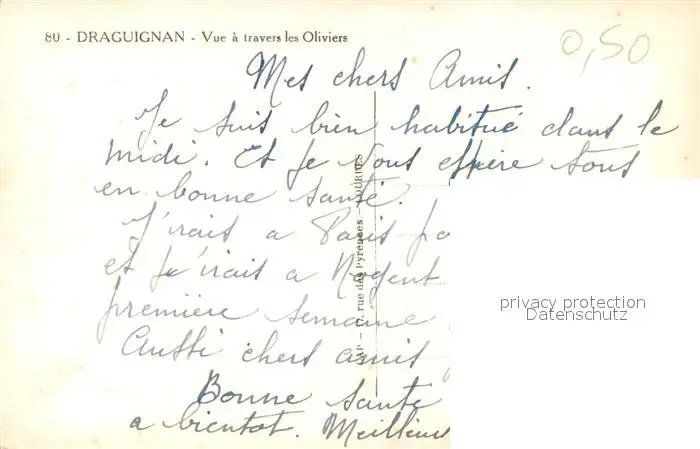 80 - DRAGUIGNAN - Vue à travers les Oliviers
0,50
Mes chers Amis.
Je suis bien habitué dans le
midi. Et je vous espère tous
en bonne santé.
J'irais a Paris
et j'irais a Nogent
première semaine
Aussi chers amis
Bonne santé
a bientot. Meilleu
rue des Pyrénées - LOURDES
privacy protection
Datenschutz